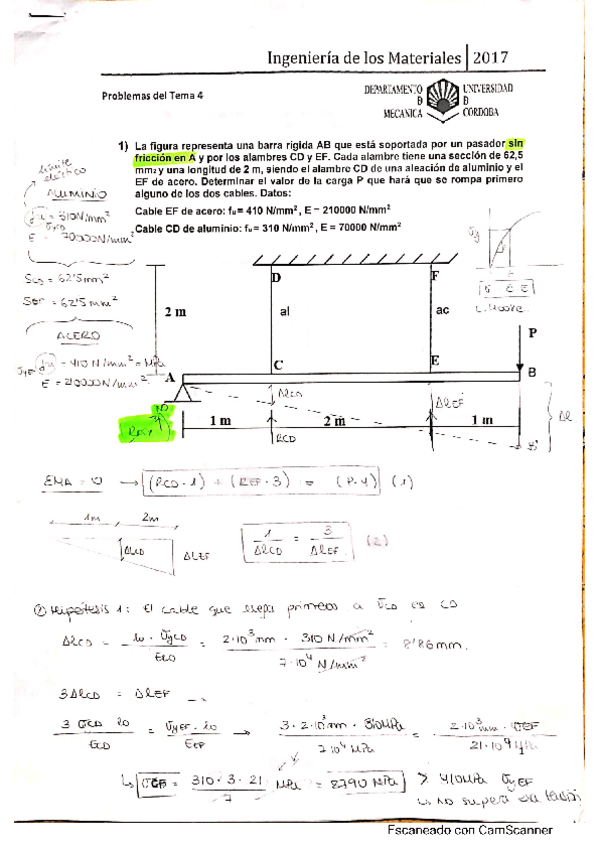 Ingeniería de los Materiales | 2017
Problemas del Tema 4
DEPARTAMENTO
D
MECANICA
UNIVERSIDAD
D
CORDOBA
1) La figura representa una barra rigida AB que está soportada por un pasador sin
fricción en A y por los alambres CD y EF. Cada alambre tiene una sección de 62,5
mm2 y una longitud de 2 m, siendo el alambre CD de una aleación de aluminio y el
EF de acero. Determinar el valor de la carga P que hará que se rompa primero
alguno de los dos cables. Datos:
Cable EF de acero: fu= 410 N/mm², E = 210000 N/mm²
Cable CD de aluminio: fu= 310 N/mm², E = 70000 N/mm²
límite
elástico
ALUMINIO
= 310N/mm²
E = 70000N/mm²
SCD = 62'5mm²
SEF = 62'5mm²
ACERO
= 410 N/mm² = MPa
E = 210000 N/mm²
L. Hooke.
D
F
2 m
al
ac
P
C
E
A
B
ΔlCD
ΔlEF
Δl
1 m
2 m
1 m
RCD
B'
ΣMA = 0 → (RCD·1) + (REF·3) = (P·4) (1)
1m 2m
ΔlCD
ΔlEF
1/ΔlCD = 3/ΔlEF (2)
Hipótesis 1: El cable que llega primero a σCD es CD
ΔlCD = lo·σyCD/ECD = 2·10³mm · 310 N/mm² / 7·10⁴ N/mm² = 8'86mm.
3ΔlCD = ΔlEF
3 σCD lo/ECD = σyEF·lo/EEF → 3·2·10³mm·310MPa / 7·10⁴ MPa = 2·10³mm·σEF / 21·10⁴ MPa
↳ σEF = 310·3·21/7 MPa = 2790 MPa > 410MPa σyEF
↳ no supera
Escaneado con CamScanner